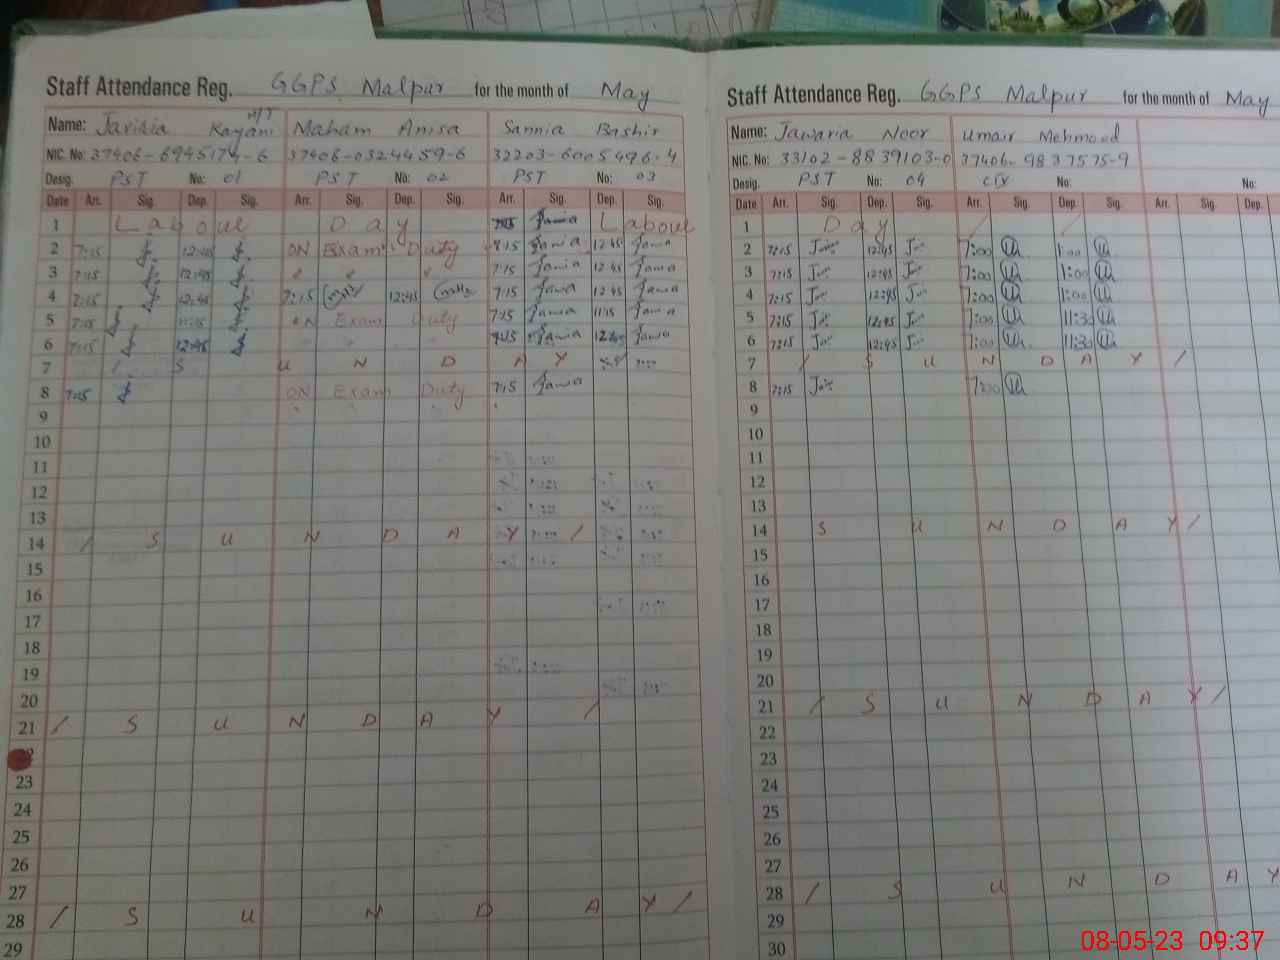 Staff Attendance Reg. GGPS Malpur for the month of May
Name: Kayani H/T Maham Anisa Sannia Bashir
NIC. No: 37406-6945174-6 37406-0324459-6 32203-6005496-4
Desig. PST No: 01 PST No: 02 PST No: 03
Date Arr. Sig. Dep. Sig. Arr. Sig. Dep. Sig. Arr. Sig. Dep. Sig.
1 Labour Day Labour
2 7:15 12:45 ON Exam Duty 7:15 12:45
3 7:15 12:45 " " " 7:15 12:45
4 7:15 12:45 7:15 12:45 7:15 12:45
5 7:15 11:15 ON Exam Duty 7:15 11:15
6 7:15 12:45 7:15 12:45
7 / S U N D A Y
8 7:15 ON Exam Duty 7:15
9
10
11
12
13
14 / S U N D A Y /
15
16
17
18
19
20
21 / S U N D A Y /
23
24
25
26
27
28 / S U N D A Y /
29
Staff Attendance Reg. GGPS Malpur for the month of May
Name: Jawaria Noor Umair Mehmood
NIC. No: 33102-8839103-0 37406-9837575-9
Desig. PST No: 04 No: No:
Date Arr. Sig. Dep. Sig. Arr. Sig. Dep. Sig. Arr. Sig. Dep.
1 Day / /
2 7:15 12:45 7:00 1:00
3 7:15 12:45 7:00 1:00
4 7:15 12:45 7:00 1:00
5 7:15 12:45 7:00 11:30
6 7:15 12:45 7:00 11:30
7 / S U N D A Y /
8 7:15 7:00
9
10
11
12
13
14 S U N D A Y /
15
16
17
18
19
20
21 / S U N D A Y /
22
23
24
25
26
27
28 / S U N D A Y
29
30
08-05-23 09:37